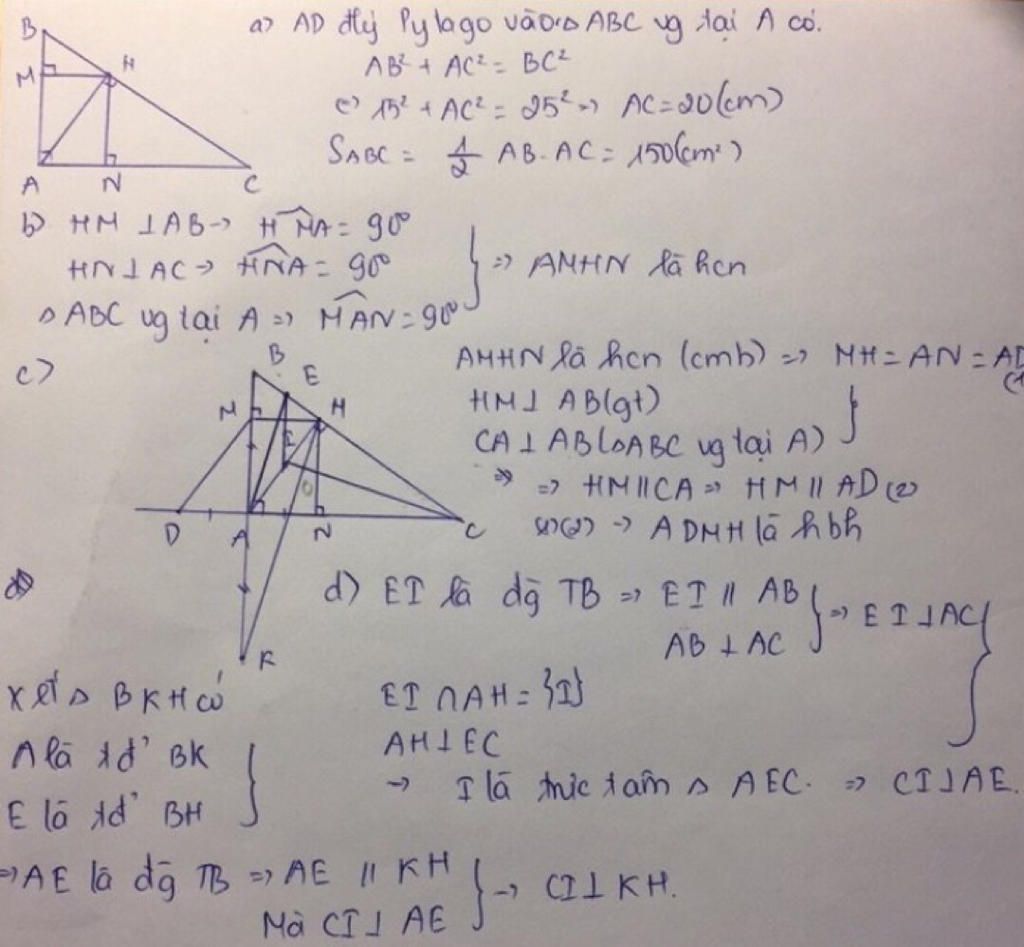 a) AD đlý Pylago vào △ ABC vg tại A có.
AB² + AC² = BC²
(=) 15² + AC² = 25² => AC = 20 (cm)
S ABC = 1/2 AB . AC = 150 (cm²)
B
M
H
A
N
C
b) HM ⊥ AB -> HMA = 90°
HN ⊥ AC -> HNA = 90°
△ ABC vg tại A => MAN = 90°
} => AMHN là hcn
c)
B
E
M
H
I
O
D
A
N
C
K
AMHN là hcn (cmb) => MH = AN = AD (1)
HM ⊥ AB (gt)
CA ⊥ AB (△ABC vg tại A) }
=> HM // CA => HM // AD (2)
(1)(2) -> ADMH là hbh
d) EI là đg TB => EI // AB
AB ⊥ AC } => EI ⊥ AC }
EI ∩ AH = {I}
AH ⊥ EC
-> I là trực tâm △ AEC. => CI ⊥ AE.
Xét △ BKH có
A là tđ' BK
E là tđ' BH }
=> AE là đg TB => AE // KH
Mà CI ⊥ AE } -> CI ⊥ KH.